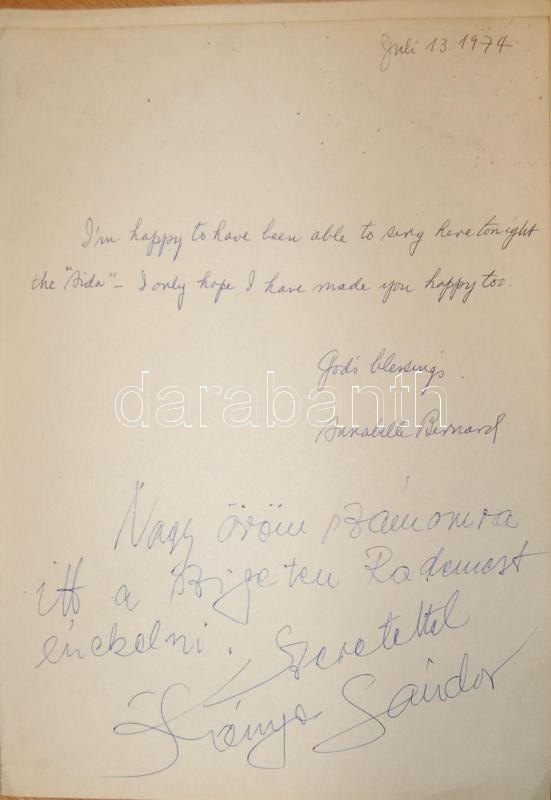 Juli 13. 1974.
I'm happy to have been able to sing here tonight
the "Aida" – I only hope I have made you happy too.
God's blessings.
darabanth
Annabelle Bernard
Nagy öröm számomra
itt a Szigeten Radamest
énekelni. Szeretettel
Kónya Sándor